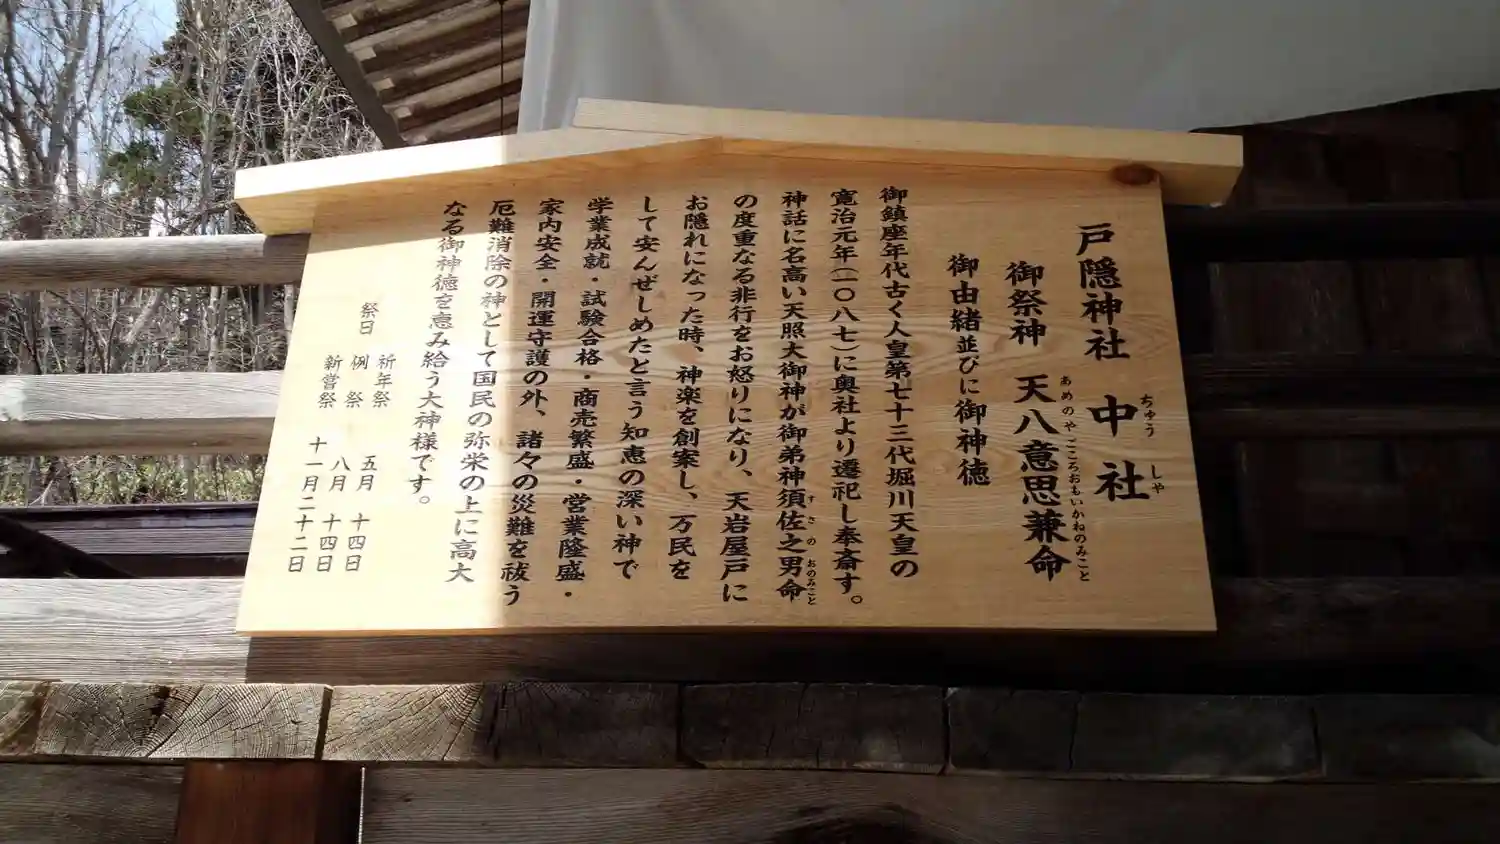 戸隠神社 中社
ちゅう しゃ
御祭神 天八意思兼命
あめのやごころおもいかねのみこと
御由緒並びに御神徳
御鎮座年代古く人皇第七十三代堀川天皇の
寛治元年(一〇八七)に奥社より遷祀し奉斎す。
神話に名高い天照大御神が御弟神須佐之男命
すさのおのみこと
の度重なる非行をお怒りになり、天岩屋戸に
お隠れになった時、神楽を創案し、万民を
して安んぜしめたと言う知恵の深い神で
学業成就・試験合格・商売繁盛・営業隆盛・
家内安全・開運守護の外、諸々の災難を祓う
厄難消除の神として国民の弥栄の上に高大
なる御神徳を恵み給う大神様です。
祭日 祈年祭 五月 十四日
例祭 八月 十四日
新嘗祭 十一月二十二日